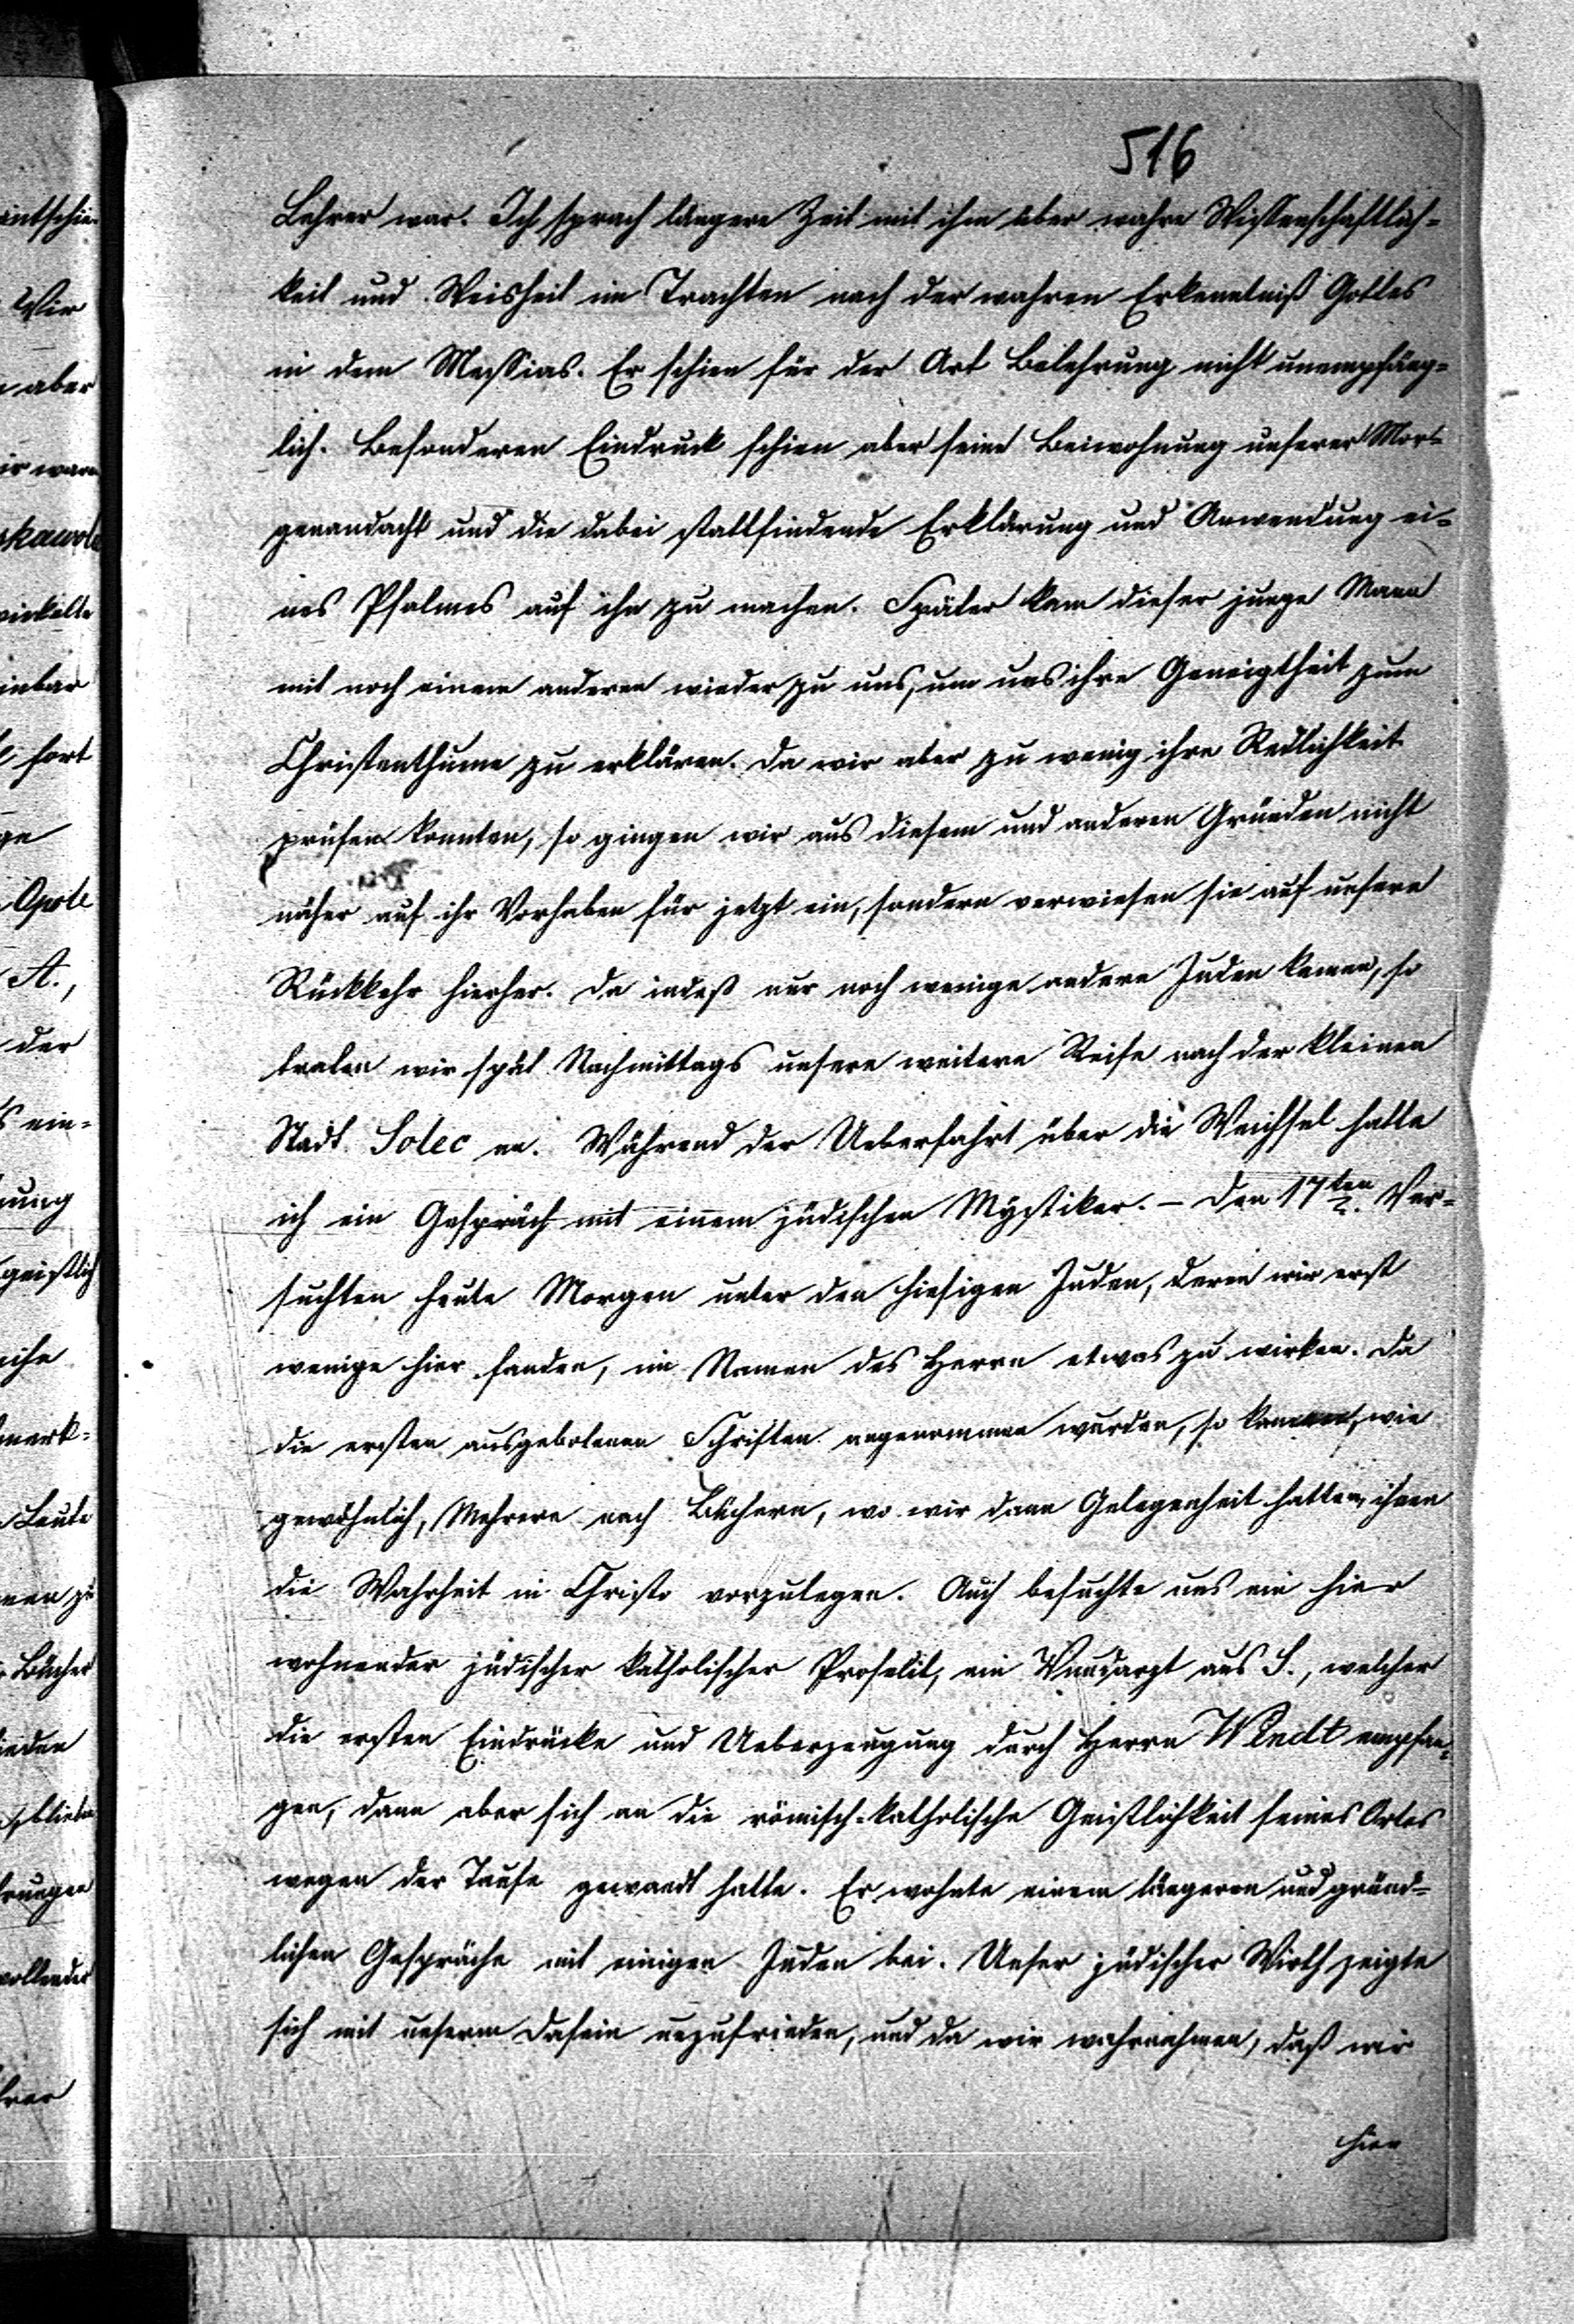 516
Lehrer war. Ich sprach längere Zeit mit ihm über wahre Wissenschaftlich-
keit und Weisheit im Trachten nach der wahren Erkenntniß Gottes
in dem Messias. Er schien für der Art Belehrung nicht unempfäng-
lich. Besonderen Eindruck schien aber seine Beiwohnung unserer Mor-
genandacht und die dabei stattfindende Erklärung und Anwendung ei-
nes Psalmes auf ihn zu machen. Später kam dieser junge Mann
mit noch einem anderen wieder zu uns, um uns ihre Geneigtheit zum
Christenthume zu erklären. Da wir aber zu wenig ihre Redlichkeit
prüfen konnten, so gingen wir aus diesem und anderen Gründen nicht
näher auf ihr Vorhaben für jetzt ein, sondern verwiesen sie auf unsere
Rückkehr hierher. Da indeß nur noch wenige andere Juden kamen, so
traten wir spät Nachmittags unsere weitere Reise nach der kleinen
Stadt Solec an. Während der Ueberfahrt über die Weichsel hatte
ich ein Gespräch mit einem jüdischen Mystiker. – Den 17ten. Ver-
suchten heute Morgen unter den hiesigen Juden, deren wir erst
wenige hier fanden, im Namen des Herrn etwas zu wirken. Da
die ersten ausgebotenen Schriften angenommen wurden, so kamen, wie
gewöhnlich, Mehrere nach Büchern, wo wir dann Gelegenheit hatten, ihnen
die Wahrheit in Christo vorzulegen. Auch besuchte uns ein hier
wohnender jüdischer katholischer Proselit, ein Wundarzt aus S., welcher
die ersten Eindrücke und Ueberzeugung durch Herrn Wendt empfan-
gen, dann aber sich an die römisch-katholische Geistlichkeit seines Ortes
wegen der Taufe gewandt hatte. Er wohnte einem längeren und gründ-
lichen Gespräche mit einigen Juden bei. Unser jüdischer Wirth zeigte
sich mit unserm Dasein unzufrieden, und da wir wahrnahmen, daß wir
hier